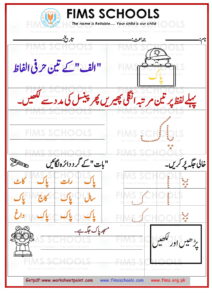 FIMS SCHOOLS
The name is Reliable... Your child is our child
نام: جماعت: تاریخ:
"الف" کے تین حرفی الفاظ
پاک
پہلے لفظ پر تین مرتبہ انگلی پھیریں پھر پینسل کی مدد سے لکھیں۔
پاک
خالی جگہ پُر کریں۔
کے گرد دائرہ لگائیں
پاک پاک رات کاٹ
سال پاک کاج پاک
پاک پاک پاک داغ
پڑھیں اور لکھیں
مسجد پاک جگہ ہے۔
Getpdf www.worksheetpoint.com www.fimsschools.com www.fims.org.pk